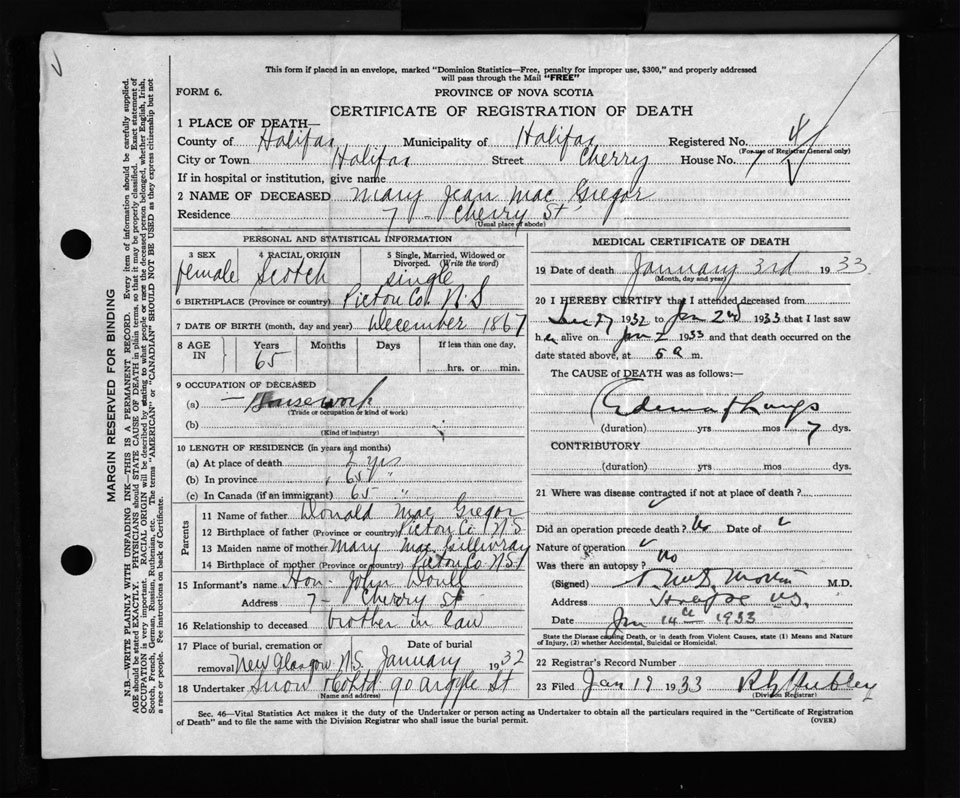 This form if placed in an envelope, marked "Dominion Statistics—Free, penalty for improper use, $300," and properly addressed
will pass through the Mail "FREE"
FORM 6.
PROVINCE OF NOVA SCOTIA
CERTIFICATE OF REGISTRATION OF DEATH
1 PLACE OF DEATH—
County of Halifax Municipality of Halifax Registered No. 4
(For use of Registrar General only)
City or Town Halifax Street Cherry House No. 7
If in hospital or institution, give name
2 NAME OF DECEASED Mary Jean Mac Gregor
Residence 7 - Cherry St
(Usual place of abode)
PERSONAL AND STATISTICAL INFORMATION
3 SEX 4 RACIAL ORIGIN 5 Single, Married, Widowed or
Divorced. (Write the word)
female Scotch single
6 BIRTHPLACE (Province or country) Pictou Co. N.S
7 DATE OF BIRTH (month, day and year) December 1867
8 AGE IN Years Months Days If less than one day,
65 hrs. or min.
9 OCCUPATION OF DECEASED
(a) — Housework
(Trade or occupation or kind of work)
(b)
(Kind of industry)
10 LENGTH OF RESIDENCE (in years and months)
(a) At place of death 2 yrs
(b) In province 65 "
(c) In Canada (if an immigrant) 65 "
Parents
11 Name of father Donald Mac Gregor
12 Birthplace of father (Province or country) Pictou Co N S
13 Maiden name of mother Mary Mac Gillivray
14 Birthplace of mother (Province or country) Pictou Co N S
15 Informant's name Hon. John Doull
Address 7 - Cherry St
16 Relationship to deceased brother in law
17 Place of burial, cremation or Date of burial
removal New Glasgow N.S. January 1932
18 Undertaker Snow Co Ltd 90 Argyle St
(Name and address)
MEDICAL CERTIFICATE OF DEATH
19 Date of death January 3rd 1933
(Month, day and year)
20 I HEREBY CERTIFY that I attended deceased from
Dec 27 1932 to Jan 2nd 1933 that I last saw
her alive on Jan 2 1933 and that death occurred on the
date stated above, at 5 a m.
The CAUSE of DEATH was as follows:—
Edema of Lungs
(duration) yrs mos 7 dys.
CONTRIBUTORY
(duration) yrs mos dys.
21 Where was disease contracted if not at place of death?
Did an operation precede death? No Date of
Nature of operation
Was there an autopsy? No
(Signed) M.D.
Address Halifax N.S.
Date Jan 14th 1933
State the Disease causing Death, or in death from Violent Causes, state (1) Means and Nature
of Injury, (2) whether Accidental, Suicidal or Homicidal.
22 Registrar's Record Number
23 Filed Jan 19 1933 Hubley
(Division Registrar)
Sec. 46—Vital Statistics Act makes it the duty of the Undertaker or person acting as Undertaker to obtain all the particulars required in the "Certificate of Registration
of Death" and to file the same with the Division Registrar who shall issue the burial permit. (OVER)
MARGIN RESERVED FOR BINDING
N.B.—WRITE PLAINLY WITH UNFADING INK—THIS IS A PERMANENT RECORD. Every item of information should be carefully supplied.
AGE should be stated EXACTLY. PHYSICIANS should STATE CAUSE OF DEATH in plain terms, so that it may be properly classified. Exact statement of
OCCUPATION is very important. RACIAL ORIGIN will be described by stating to what people or race the deceased person belonged, whether English, Irish,
Scotch, French, German, Russian, Ruthenian, etc. The terms "AMERICAN" or "CANADIAN" SHOULD NOT BE USED as they express citizenship but not
a race or people. Fee instructions on back of Certificate.